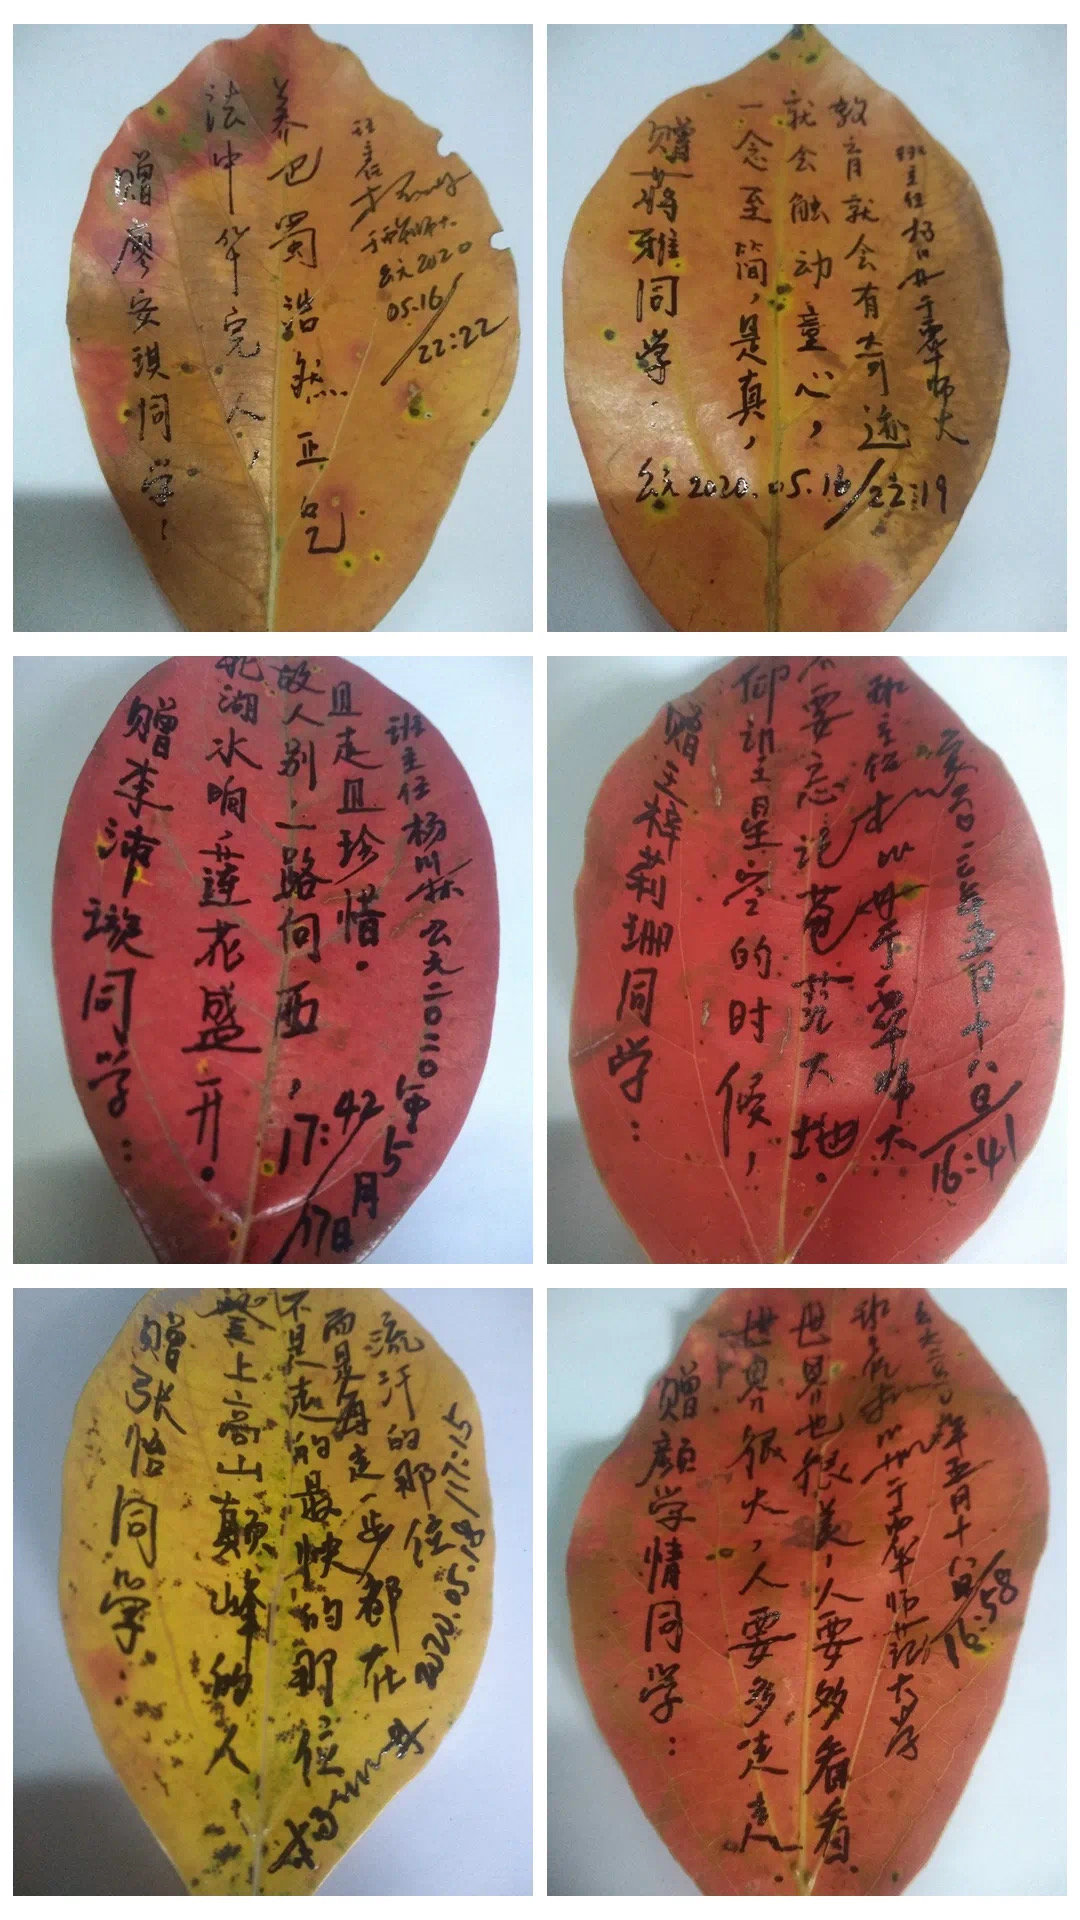 赠廖安琪同学：
法中华完人，
养巴蜀浩然正气
班主任
公元2020
05.16/22:22
赠蒋雅同学：
一念至简，是真，
就会触动童心，
教育就会有奇迹
班主任杨川于西华师大
公元2020.05.16/22:19
赠李沛璇同学：
北湖水响莲花盛开。
故人别，一路向西，
且走且珍惜。
班主任杨川林公元二0二0年5月17日/17:42
赠王梓莉珊同学：
仰望星空的时候，
不要忘记苍茫大地。
班主任于西华师大
二0年五月十八日/16:41
赠张怡同学：
登上高山巅峰的人
不是走的最快的那位
而是每走一步都在
流汗的那位
2020.05.18/17:15
赠颜学情同学：
世界很大，人要多走走
世界也很美，人要多看看
班主任于西华师范大学
年五月十八日/16:58